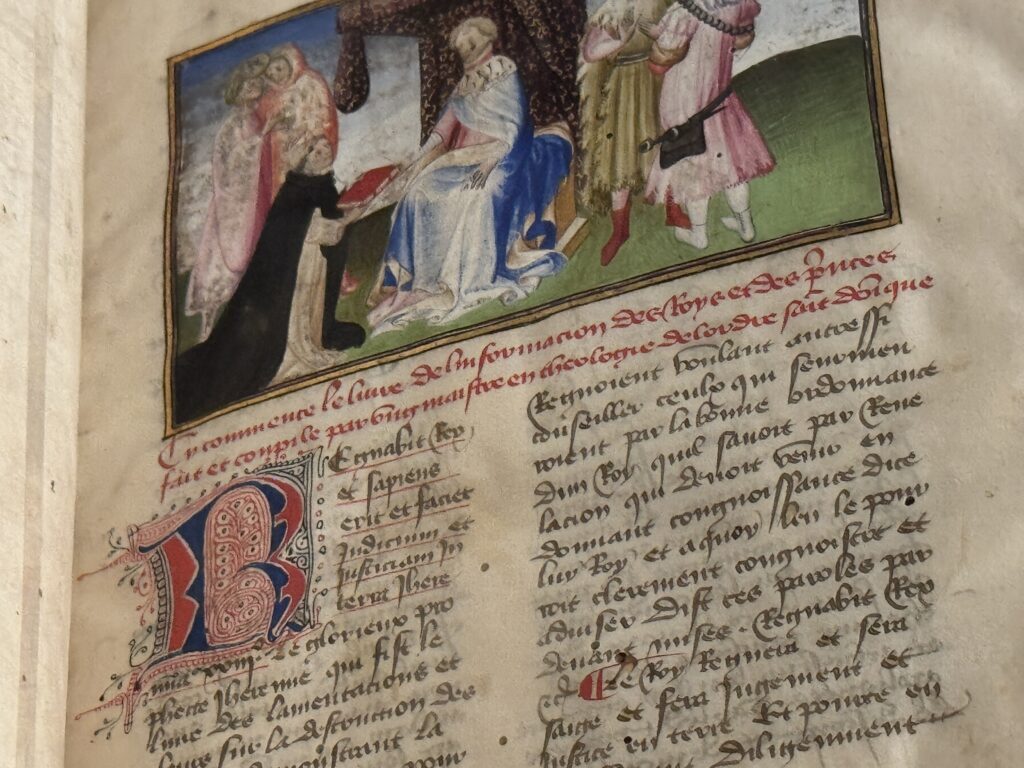 Cy commence le livre de linformacion des Roys et des princes
fait et compile par ung maistre en theologie de lordre saint dominique
Regnabit Rex
et sapiens
erit et faciet
Judicium et
justiciam in
terra Jhere
mie xxiii.o Le glorieux pro
phecte Jheremie qui fist le
livre des lamentacions et
leurs sur la destruction des
monstrant la
pour
Requoient voulant aucressi
conseiller ceulx qui
roient par la bonne ordonnance
dun Roy quil savoit par Reve
lacion qui devoit venir en
donnant congnoissance dice
luy Roy et a quoy len le pour
roit clerement congnoistre et
adviser Dist ces paroles par
devant mises. Regnabit Rex
&c Le Roy Regnera et sera
saige et fera Jugement et
Justice en terre Et pource en
diligemment